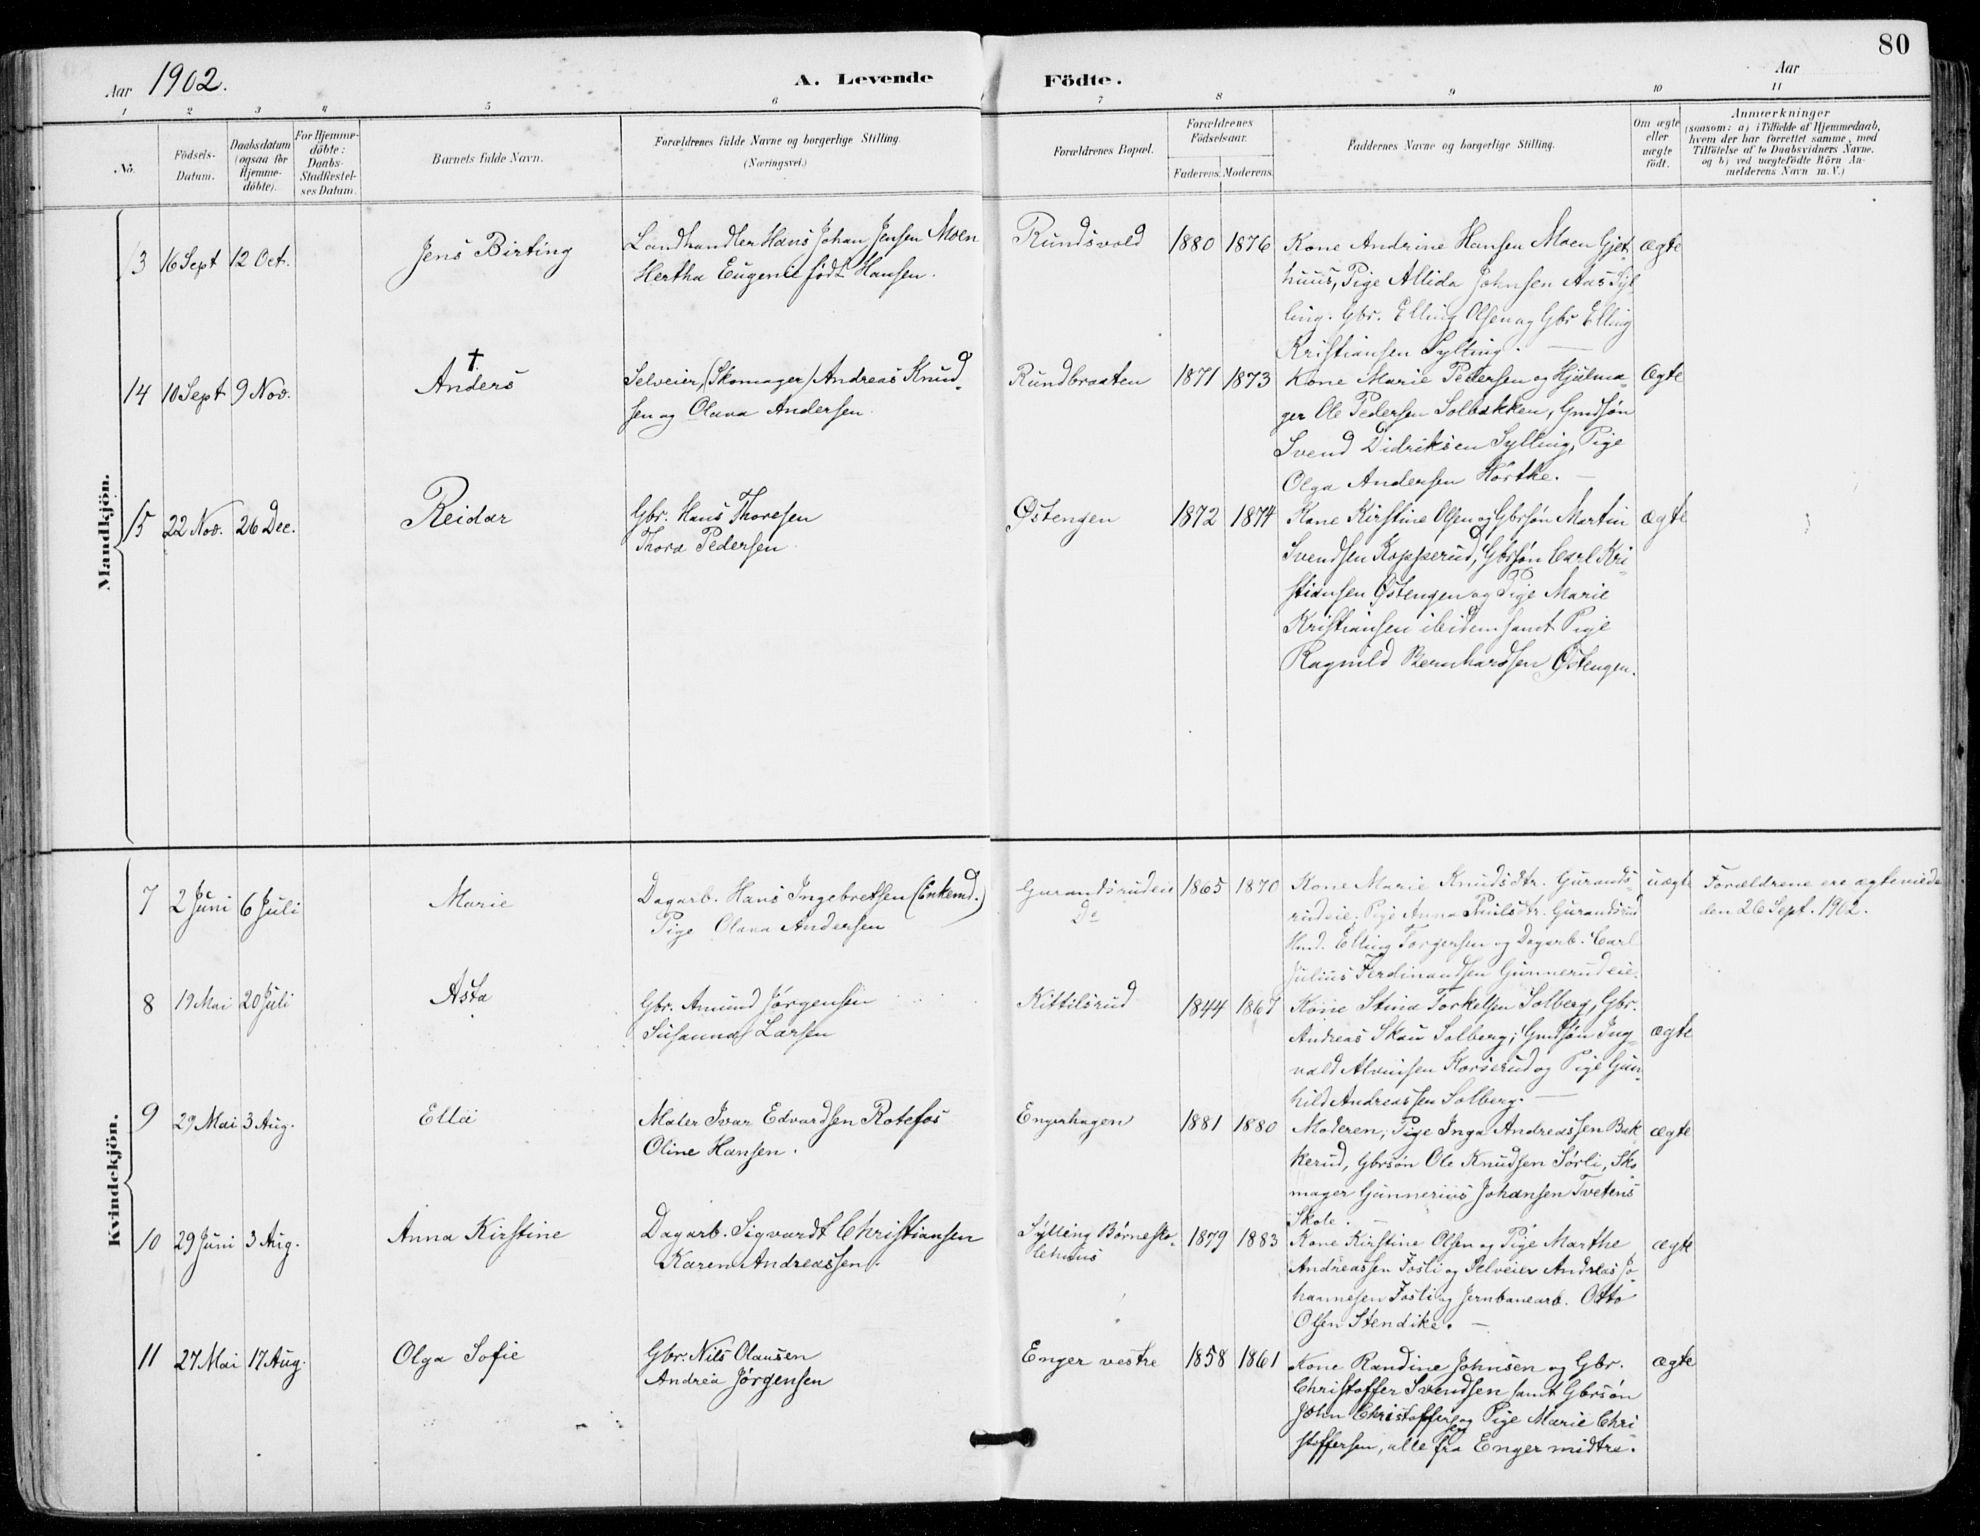 80
Aar 1902.
A. Levende Födte.
Aar
1 2 3 4 5 6 7 8 9 10 11
No.
Födsels-Datum.
Daabsdatum (ogsaa for Hjemme-döbte).
For Hjemme-döbte: Daabs-Stadfæstel-ses Datum.
Barnets fulde Navn.
Forældrenes fulde Navne og borgerlige Stilling.
(Næringsvei.)
Forældrenes Bopæl.
Forældrenes Födselsaar.
Faderens. Moderens.
Faddernes Navne og borgerlige Stilling.
Om ægte eller uægte födt.
Anmærkninger
(saasom: a) i Tilfælde af Hjemmedaab,
hvem der har forrettet samme, med
Tilföielse af to Daabsvidners Navne,
og b) ved uegtefödte Börn An-
melderens Navn m. V.)
Mandkjön.
13 16 Sept 12 Oct. Jens Birting
Landhandler Hans Johan Jensen Moen
Hertha Eugenie født Hansen.
Rundsvold 1880 1876
Kone Andrine Hansen Moen Gjet-
huus, Pige Allida Johnsen Aas Syl-
ling. Gbr. Elling Olsen og Gbr Elling
Kristiansen Sylling. —
ægte
14 10 Sept 9 Nov. † Anders
Selveier, (Skomager) Andreas Knud-
sen og Olava Andersen.
Rundbraaten 1871 1873
Kone Marie Pedersen og Hjulma-
ger Ole Pedersen Solbakken, Gmdsøn
Svend Didriksen Sylling, Pige
Olga Andersen Hørthe. —
Ægte
15 22 Nov. 26 Dec. Reidar
Gbr. Hans Thoresen
Thora Pedersen
Østengen 1872 1874
Kone Kirstine Olsen og Gbrsøn Martin
Svendsen Kopperud, Gbrsøn Carl Kri-
stiansen Østengen og Pige Marie
Kristiansen ibidem samt Pige
Ragnild Bernhardsen Østengen.
ægte
Kvindekjön.
7 2 Juni 6 Juli Marie
Dagarb. Hans Ingebretsen (Enkemd.)
Pige Olava Andersen
Gurandsrudeie
Do
1865 1870
Kone Marie Knudsdtr. Gurands-
rudeie, Pige Anna Paulsdtr. Gurandsrud
Hmd. Elling Torgersen og Dagarb. Carl
Julius Ferdinandsen Gunnerudeie.
uægte
Forældrene ere ægteviede
den 26 Sept. 1902.
8 19 Mai 20 Juli Asta
Gbr. Amund Jørgensen
Susanna Larsen
Kittilsrud 1844 1867
Kone Stina Torkelsen Solberg, Gbr.
Andreas Skau Solberg, Gmdsøn Ing-
vald Alvinsen Korserud og Pige Gun-
hild Andreassen Solberg. —
ægte
9 29 Mai 3 Aug. Ella
Maler Ivar Edvardsen Rotefos
Oline Hansen.
Engerhagen 1881 1880
Moderen, Pige Inga Andreassen Bak-
kerud, Gbrsøn Ole Knudsen Sørli, Sko
mager Gunnerius Johansen Tvetens
Skole. —
ægte
10 29 Juni 3 Aug. Anna Kirstine
Dagarb. Sigvardt Christiansen
Karen Andreassen.
Sylling Børnesko-
lehuus
1879 1883
Kone Kirstine Olsen og Pige Marthe
Andreassen Fosli og Selveier Andreas Jo-
hannesen Fosli og Jernbanearb. Otto
Olsen Stendike. —
ægte
11 27 Mai 17 Aug. Olga Sofie
Gbr. Nils Olausen
Andrea Jørgensen
Enger vestre 1858 1861
Kone Randine Johnsen og Gbr.
Christoffer Svendsen samt Gbrsøn
John Christoffersen og Pige Marie Chri
stoffersen, alle fra Enger midtre.
ægte